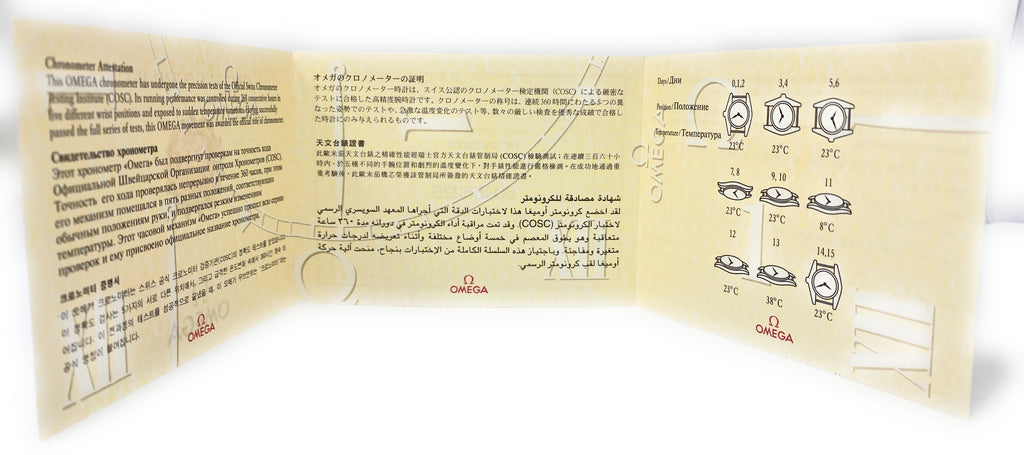 Chronometer Attestation
This OMEGA chronometer has undergone the precision tests of the Official Swiss Chronometer
Testing Institute (COSC). Its running performance was controlled during 360 consecutive hours in
five different wrist positions and exposed to sudden temperature variations. Having successfully
passed the full series of tests, this OMEGA movement was awarded the official title of chronometer.
Свидетельство хронометра
Этот хронометр «Омега» был подвергнут проверкам на точность хода
Официальной Швейцарской Организации контроля Хронометров (COSC).
Точность его хода проверялась непрерывно в течение 360 часов, при этом
его механизм помещался в пять разных положений, соответствующих
обычным положениям руки, и подвергался резким изменениям
температуры. Этот часовой механизм «Омега» успешно прошел всю серию
проверок и ему присвоено официальное название хронометр.
크로노미터 증명서
이 오메가 크로노미터는 스위스 공식 크로노미터 검증기관(COSC)의
공식 명칭이 붙여집니다.
Ω
OMEGA
オメガのクロノメーターの証明
オメガのクロノメーター時計は、スイス公認のクロノメーター検定機関 (COSC) による厳密な
テストに合格した高精度腕時計です。クロノメーターの称号は、連続360時間にわたる5つの異
なった姿勢でのテストや、急激な温度変化のテスト等、数々の厳しい検査を優秀な成績で合格し
た時計にのみ与えられるものです。
天文台錶證書
此歐米茄天文台錶之精確性能經瑞士官方天文台錶管制局 (COSC) 檢驗測試：在連續三百六十小
時內、於五種不同的手腕位置和劇烈的溫度變化下、對手錶性能進行嚴格檢測。在成功地通過重
重考驗後、此歐米茄機芯榮獲該管制局所簽發的天文台錶精確證書。
شهادة مصادقة للكرونومتر
لقد اخضع كرونومتر أوميغا هذا لاختبارات الدقة التي أجراها المعهد السويسري الرسمي
لاختبار الكرونومتر (COSC). وقد تمت مراقبة أداء الكرونومتر في دورانه مدة ٣٦٠ ساعة
متعاقبة وهو يطوق المعصم في خمسة أوضاع مختلفة وأثناء تعريضه لدرجات حرارة
متغيرة ومفاجئة. وباجتياز هذه السلسلة الكاملة من الإختبارات بنجاح، منحت آلية حركة
أوميغا لقب كرونومتر الرسمي.
Ω
OMEGA
Days/Дни 0,1,2 3,4 5,6
Position/Положение
Temperature/Температура 23°C 23°C 23°C
7, 8 9, 10 11
23°C 23°C 8°C
12 13 14,15
23°C 38°C 23°C
Ω
OMEGA